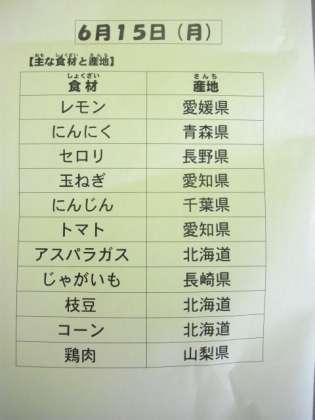 6月15日(月)
【主な食材と産地】
食材 産地
レモン 愛媛県
にんにく 青森県
セロリ 長野県
玉ねぎ 愛知県
にんじん 千葉県
トマト 愛知県
アスパラガス 北海道
じゃがいも 長崎県
枝豆 北海道
コーン 北海道
鶏肉 山梨県